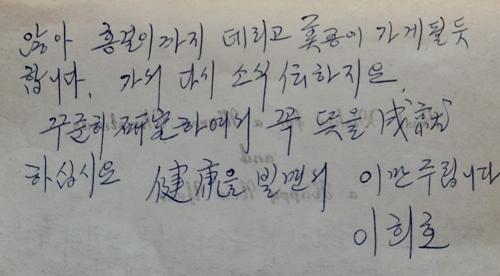 않아 흥걸이까지 데리고 美國이 가게 될 듯
합니다. 가서 다시 소식 傳하지요.
꾸준히 硏究하여서 꼭 뜻을 成就
하십시요 健康을 빌면서 이만 주립니다
이희호